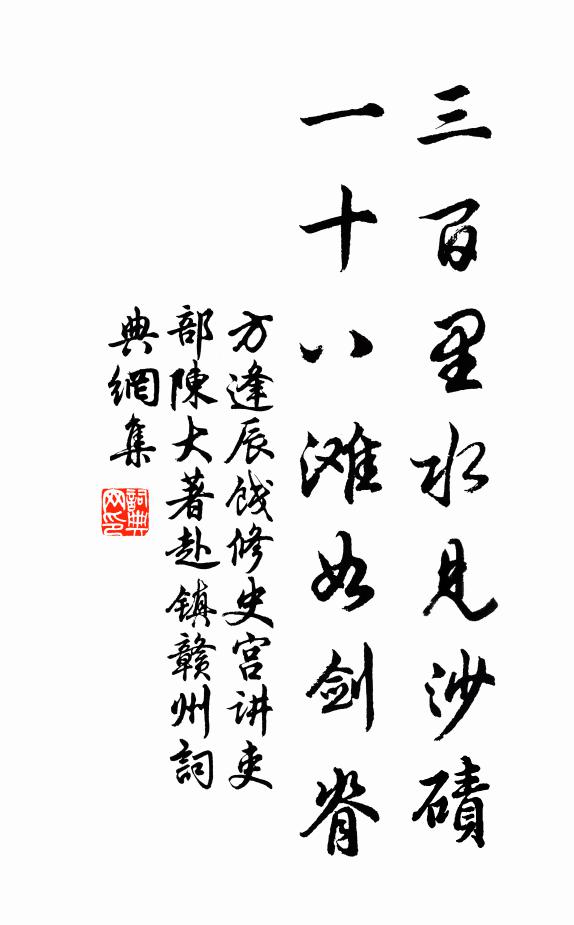 三百里水见沙碛
一十八滩如剑脊
方逢辰饯修史宫讲吏
部陳大著赴镇赣州詞
典網集
詞典
网印